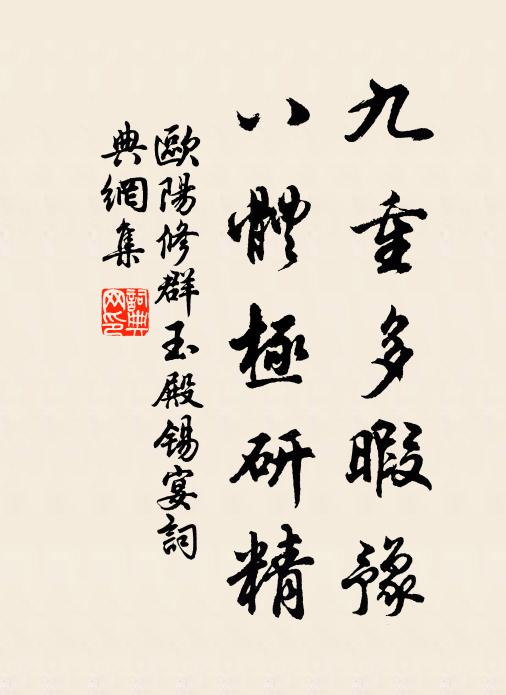 九重多暇豫
八體極研精
歐陽修群玉殿錫宴詞
典網集
詞典
网印